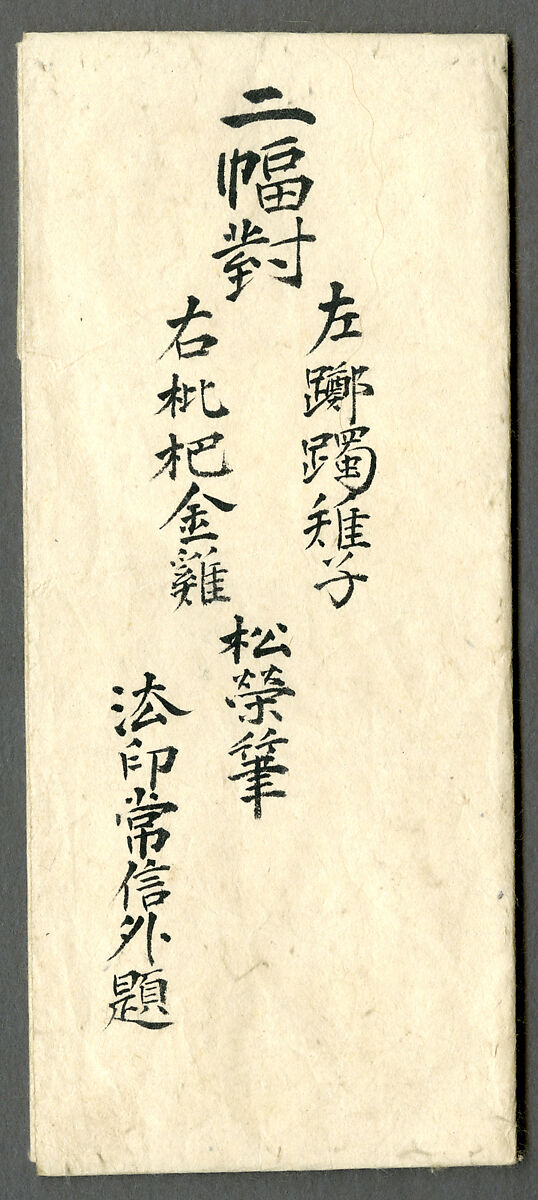 二幅對
左躑躅雉子
右枇杷金雞
松榮筆
法印常信外題